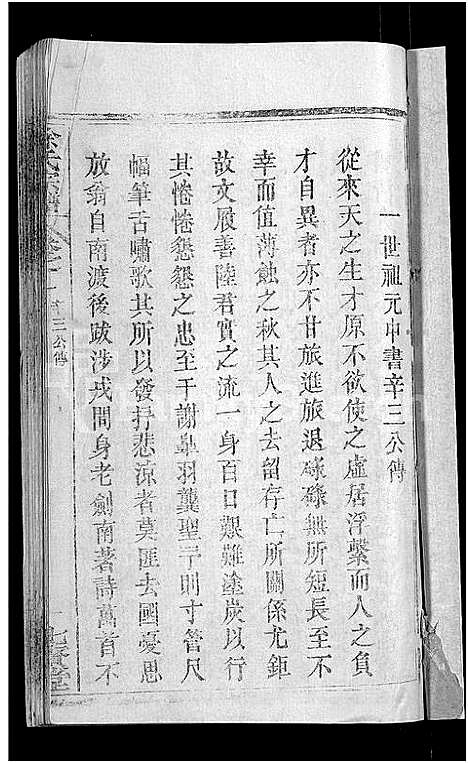 一世祖元中書辛三公傳
從來天之生才原不欲使之虛居浮繫而人之負
才自異者亦不甘旅進旅退碌碌無所短長至不
幸而值薄蝕之秋其人之去留存亡所關係尤鉅
故文履善陸君實之流一身百口艱難塗炭以行
其惓惓懇懇之忠至于謝臯羽龔聖予則寸管尺
幅筆舌嘯歌其所以發抒悲涼者莫匪去國憂思
放翁自南渡後跋涉戎間身老劍南著詩萬首不
三公傳